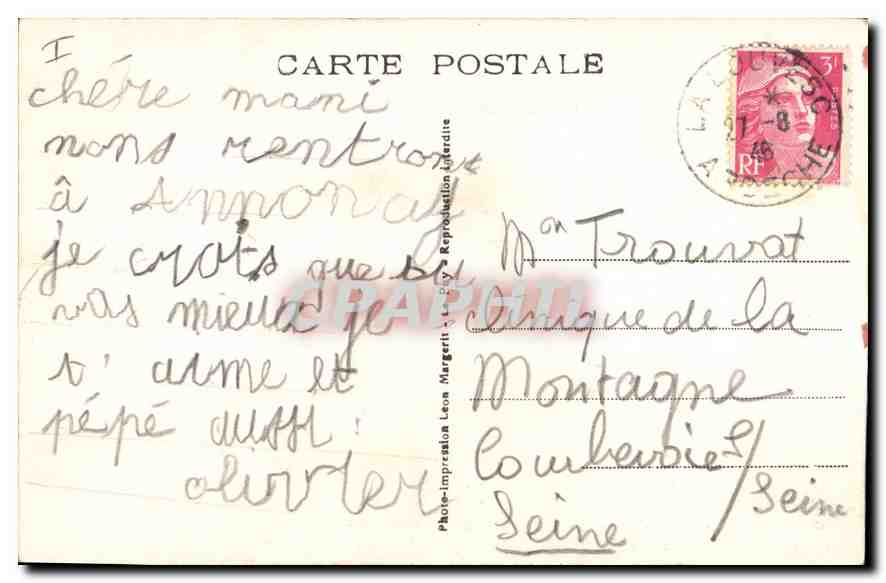 I
CARTE POSTALE
chére mami
nous rentrons
â Annonay
je crois que tu
vas mieux je
t'aime et
pépé aussi !
olivier
Photo-Impression Léon Margerit - Le Puy - Reproduction Interdite
LA LOUVESC
27 -8
ARDECHE
3F
POSTES
RF
Mon Trouvat
clinique de la
Montagne
Courbevoie S/
Seine
Seine
CPAPHIL